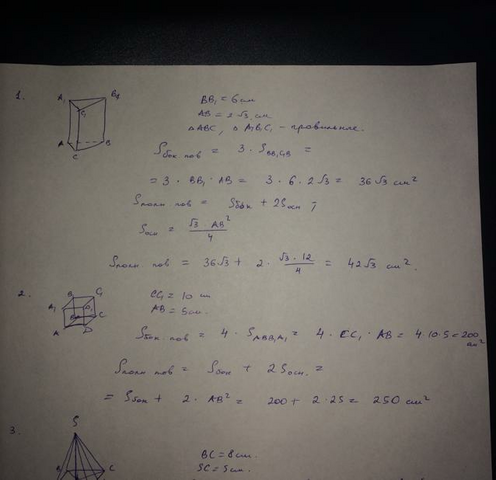 1.
A₁ B₁
C₁
A B
C
BB₁ = 6 см
AB = 2√3 см
△ABC, △A₁B₁C₁ - правильные.
Sбок пов = 3 · SBB₁C₁B =
= 3 · BB₁ · AB = 3 · 6 · 2√3 = 36√3 см²
Sполн пов = Sбок + 2Sосн ;
Sосн = √3 · AB² / 4
Sполн пов = 36√3 + 2 · √3 · 12 / 4 = 42√3 см².
2.
B₁ C₁
A₁ D₁
B C
A D
CC₁ = 10 см
AB = 5 см.
Sбок пов = 4 · SABB₁A₁ = 4 · CC₁ · AB = 4 · 10 · 5 = 200 см²
Sполн пов = Sбок + 2Sосн. =
= Sбок + 2 · AB² = 200 + 2 · 25 = 250 см²
3.
S
B C
BC = 8 см.
SC = 5 см.